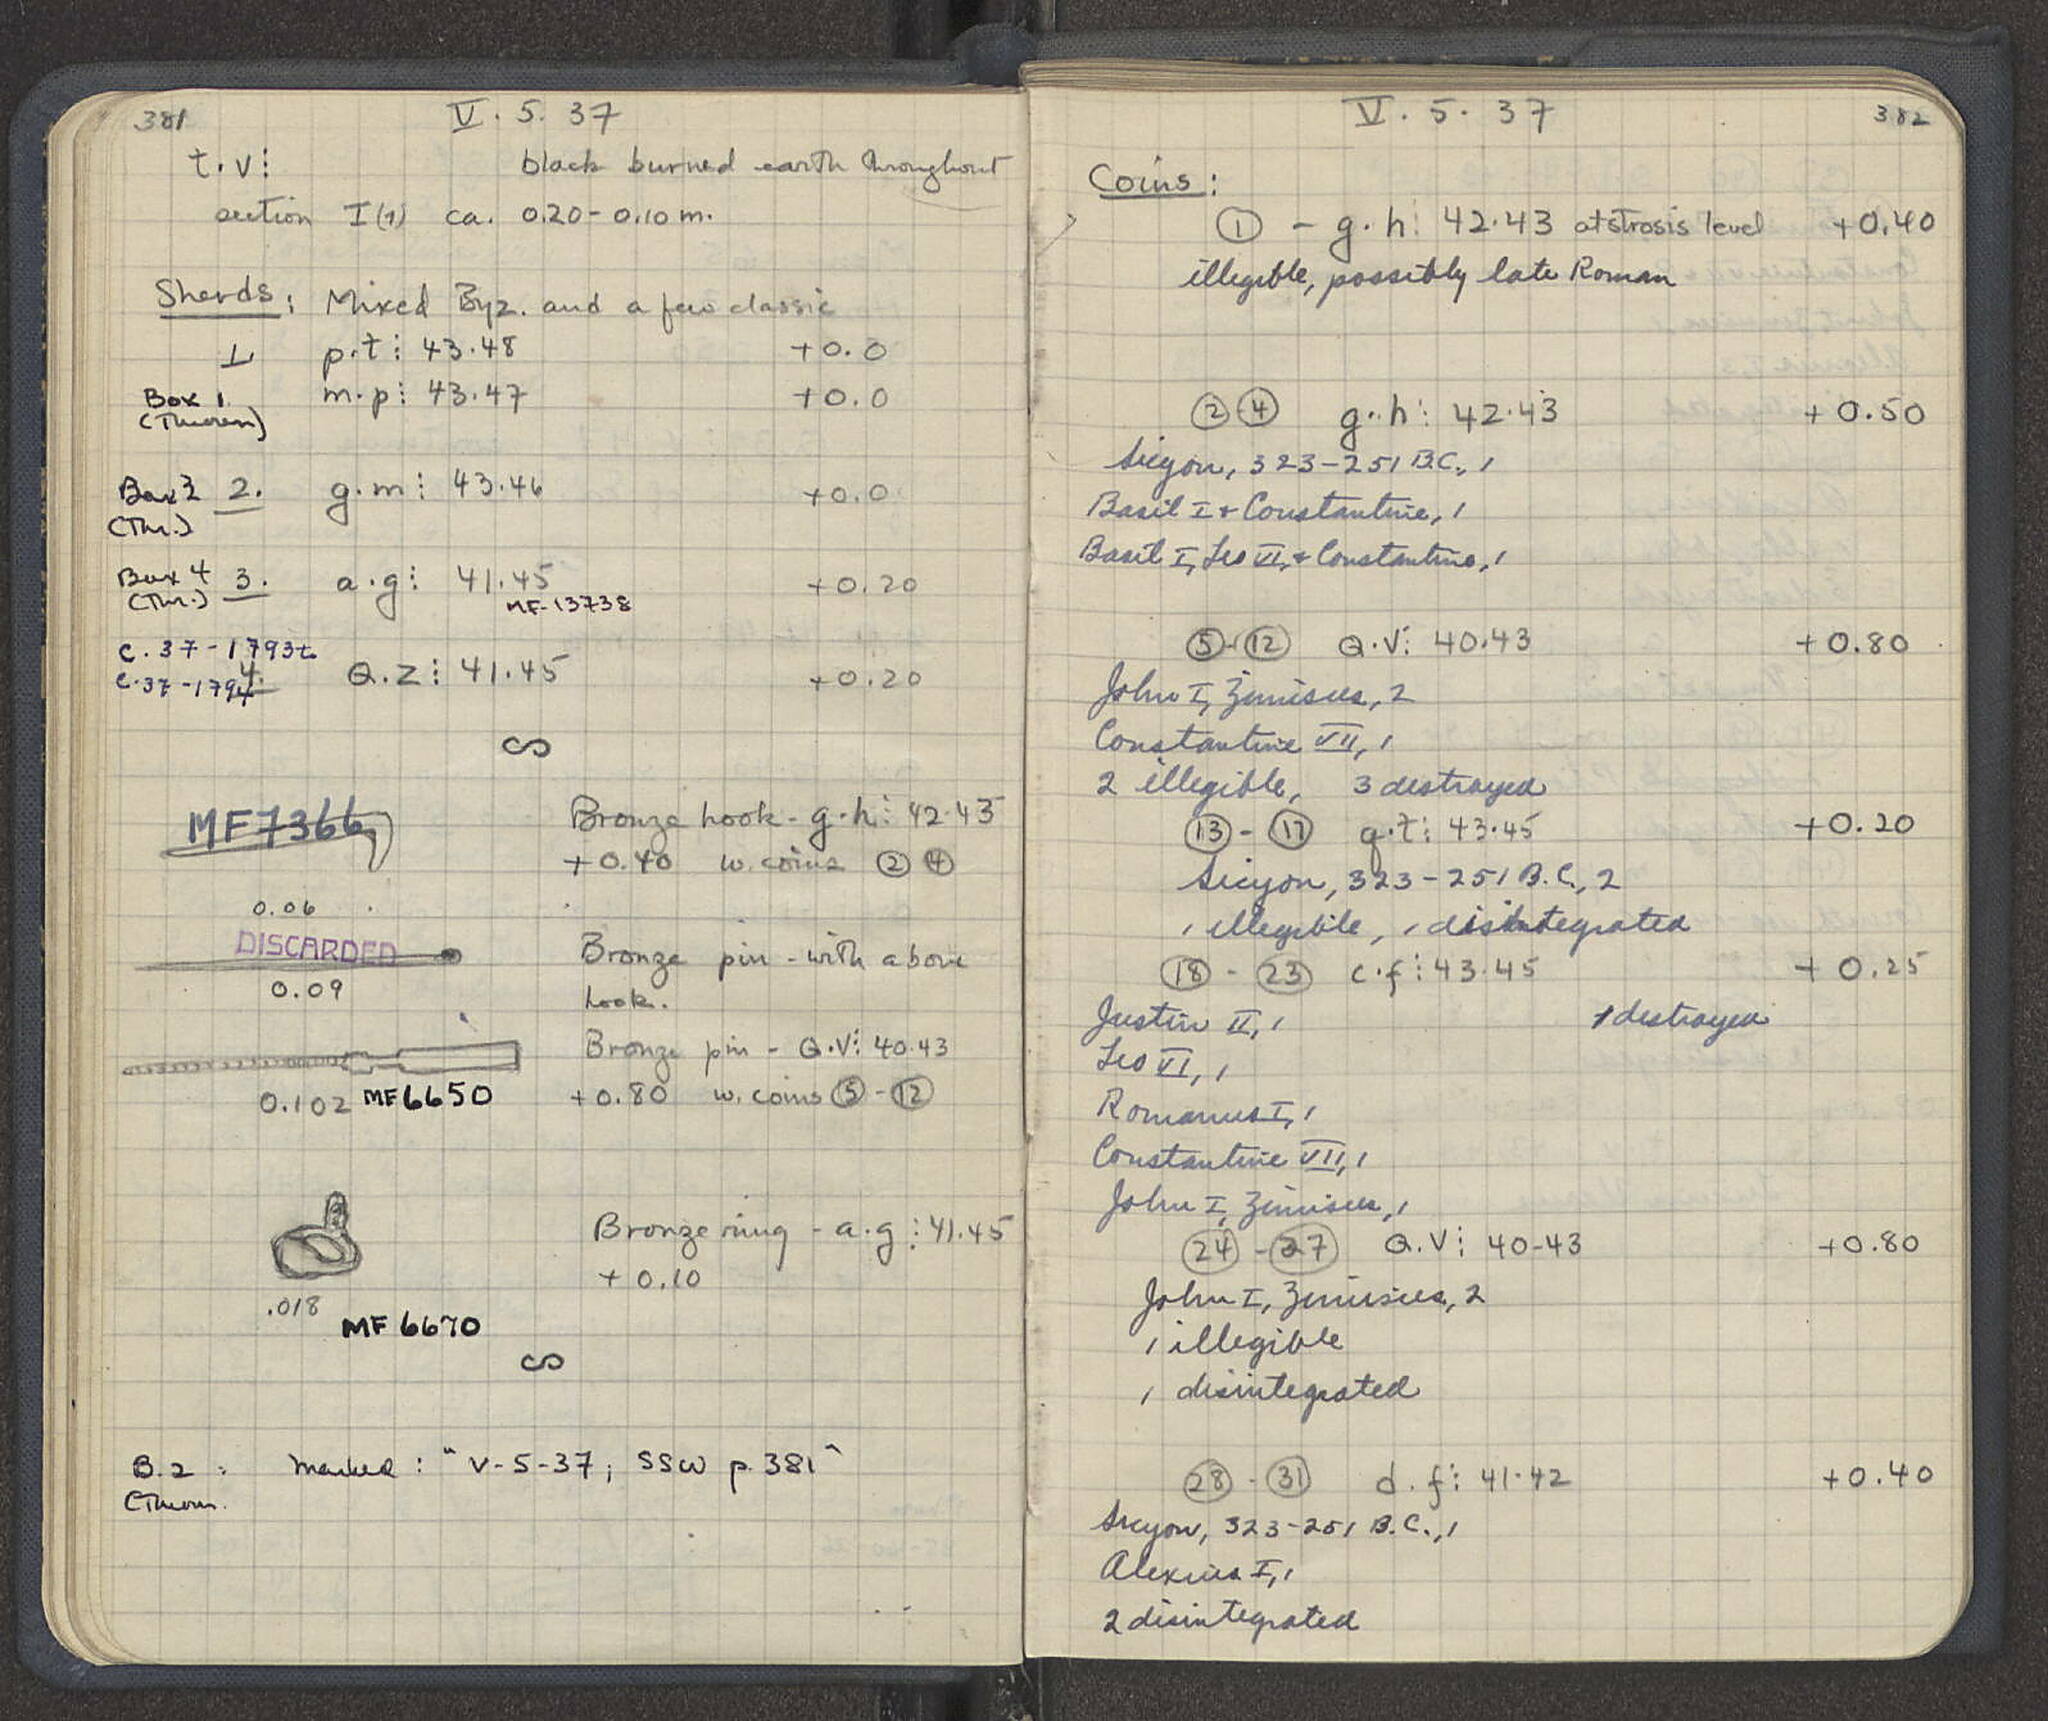 381
V. 5. 37
t.v⋮ black burned earth throughout
section I(1) ca. 0.20-0.10 m.
Sherds: Mixed Byz. and a few classic
1 p.t⋮ 43.48 +0.0
Box 1 m.p⋮ 43.47 +0.0
Box 2 2. g.m⋮ 43.46 +0.0
(Thr.)
Box 4 3. a.g⋮ 41.45 +0.20
(Thr.) MF-13738
C.37-1793
4. Q.Z⋮ 41.45 +0.20
C.37-1794
MF7366 Bronze hook - g.h⋮ 42.43
+0.40 w. coins ② ④
0.06
DISCARDED Bronze pin - with above
0.09 hook.
Bronze pin - Q.V⋮ 40.43
0.102 MF6650 +0.80 w. coins ⑤-⑫
Bronze ring - a.g⋮ 41.45
+0.10
.018
MF 6670
B.2: marked: "V-5-37; SSW p. 381"
V. 5. 37
382
Coins:
① - g.h⋮ 42.43 at strosis level +0.40
illegible, possibly late Roman
②-④ g.h⋮ 42.43 +0.50
Sicyon, 323-251 B.C., 1
Basil I + Constantine, 1
Basil I, Leo VI, + Constantine, 1
⑤-⑫ Q.V⋮ 40.43 +0.80
John I, Zimisces, 2
Constantine VII, 1
2 illegible, 3 destroyed
⑬-⑰ g.t⋮ 43.45 +0.20
Sicyon, 323-251 B.C., 2
1 illegible, 1 disintegrated
⑱-㉓ c.f⋮ 43.45 +0.25
Justin II, 1 1 destroyed
Leo VI, 1
Romanus I, 1
Constantine VII, 1
John I, Zimisces, 1
㉔-㉗ Q.V⋮ 40-43 +0.80
John I, Zimisces, 2
1 illegible
1 disintegrated
㉘-㉛ d.f⋮ 41.42 +0.40
Sicyon, 323-251 B.C., 1
Alexius I, 1
2 disintegrated